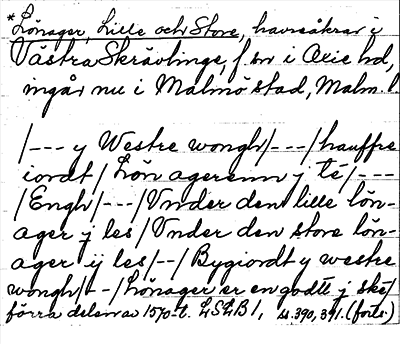 *Lönager, Lille och Store, havreåkrar i
Västra Skrävlinge, f. sn i Oxie hd,
ingår nu i Malmö stad, Malm. l.
/--- y Westre wongh/---/hauffre
iordt/Lön agerenn y té/---
/Engh/---/Vnder den lille lön-
ager ÿ les/Vnder den store lön-
ager ij les/--/Bygiordt y westre
wongh/--/Lönager er en godtt j ske/
förra delen av 1570-t. LSLB 1, s. 390, 391. (forts.)